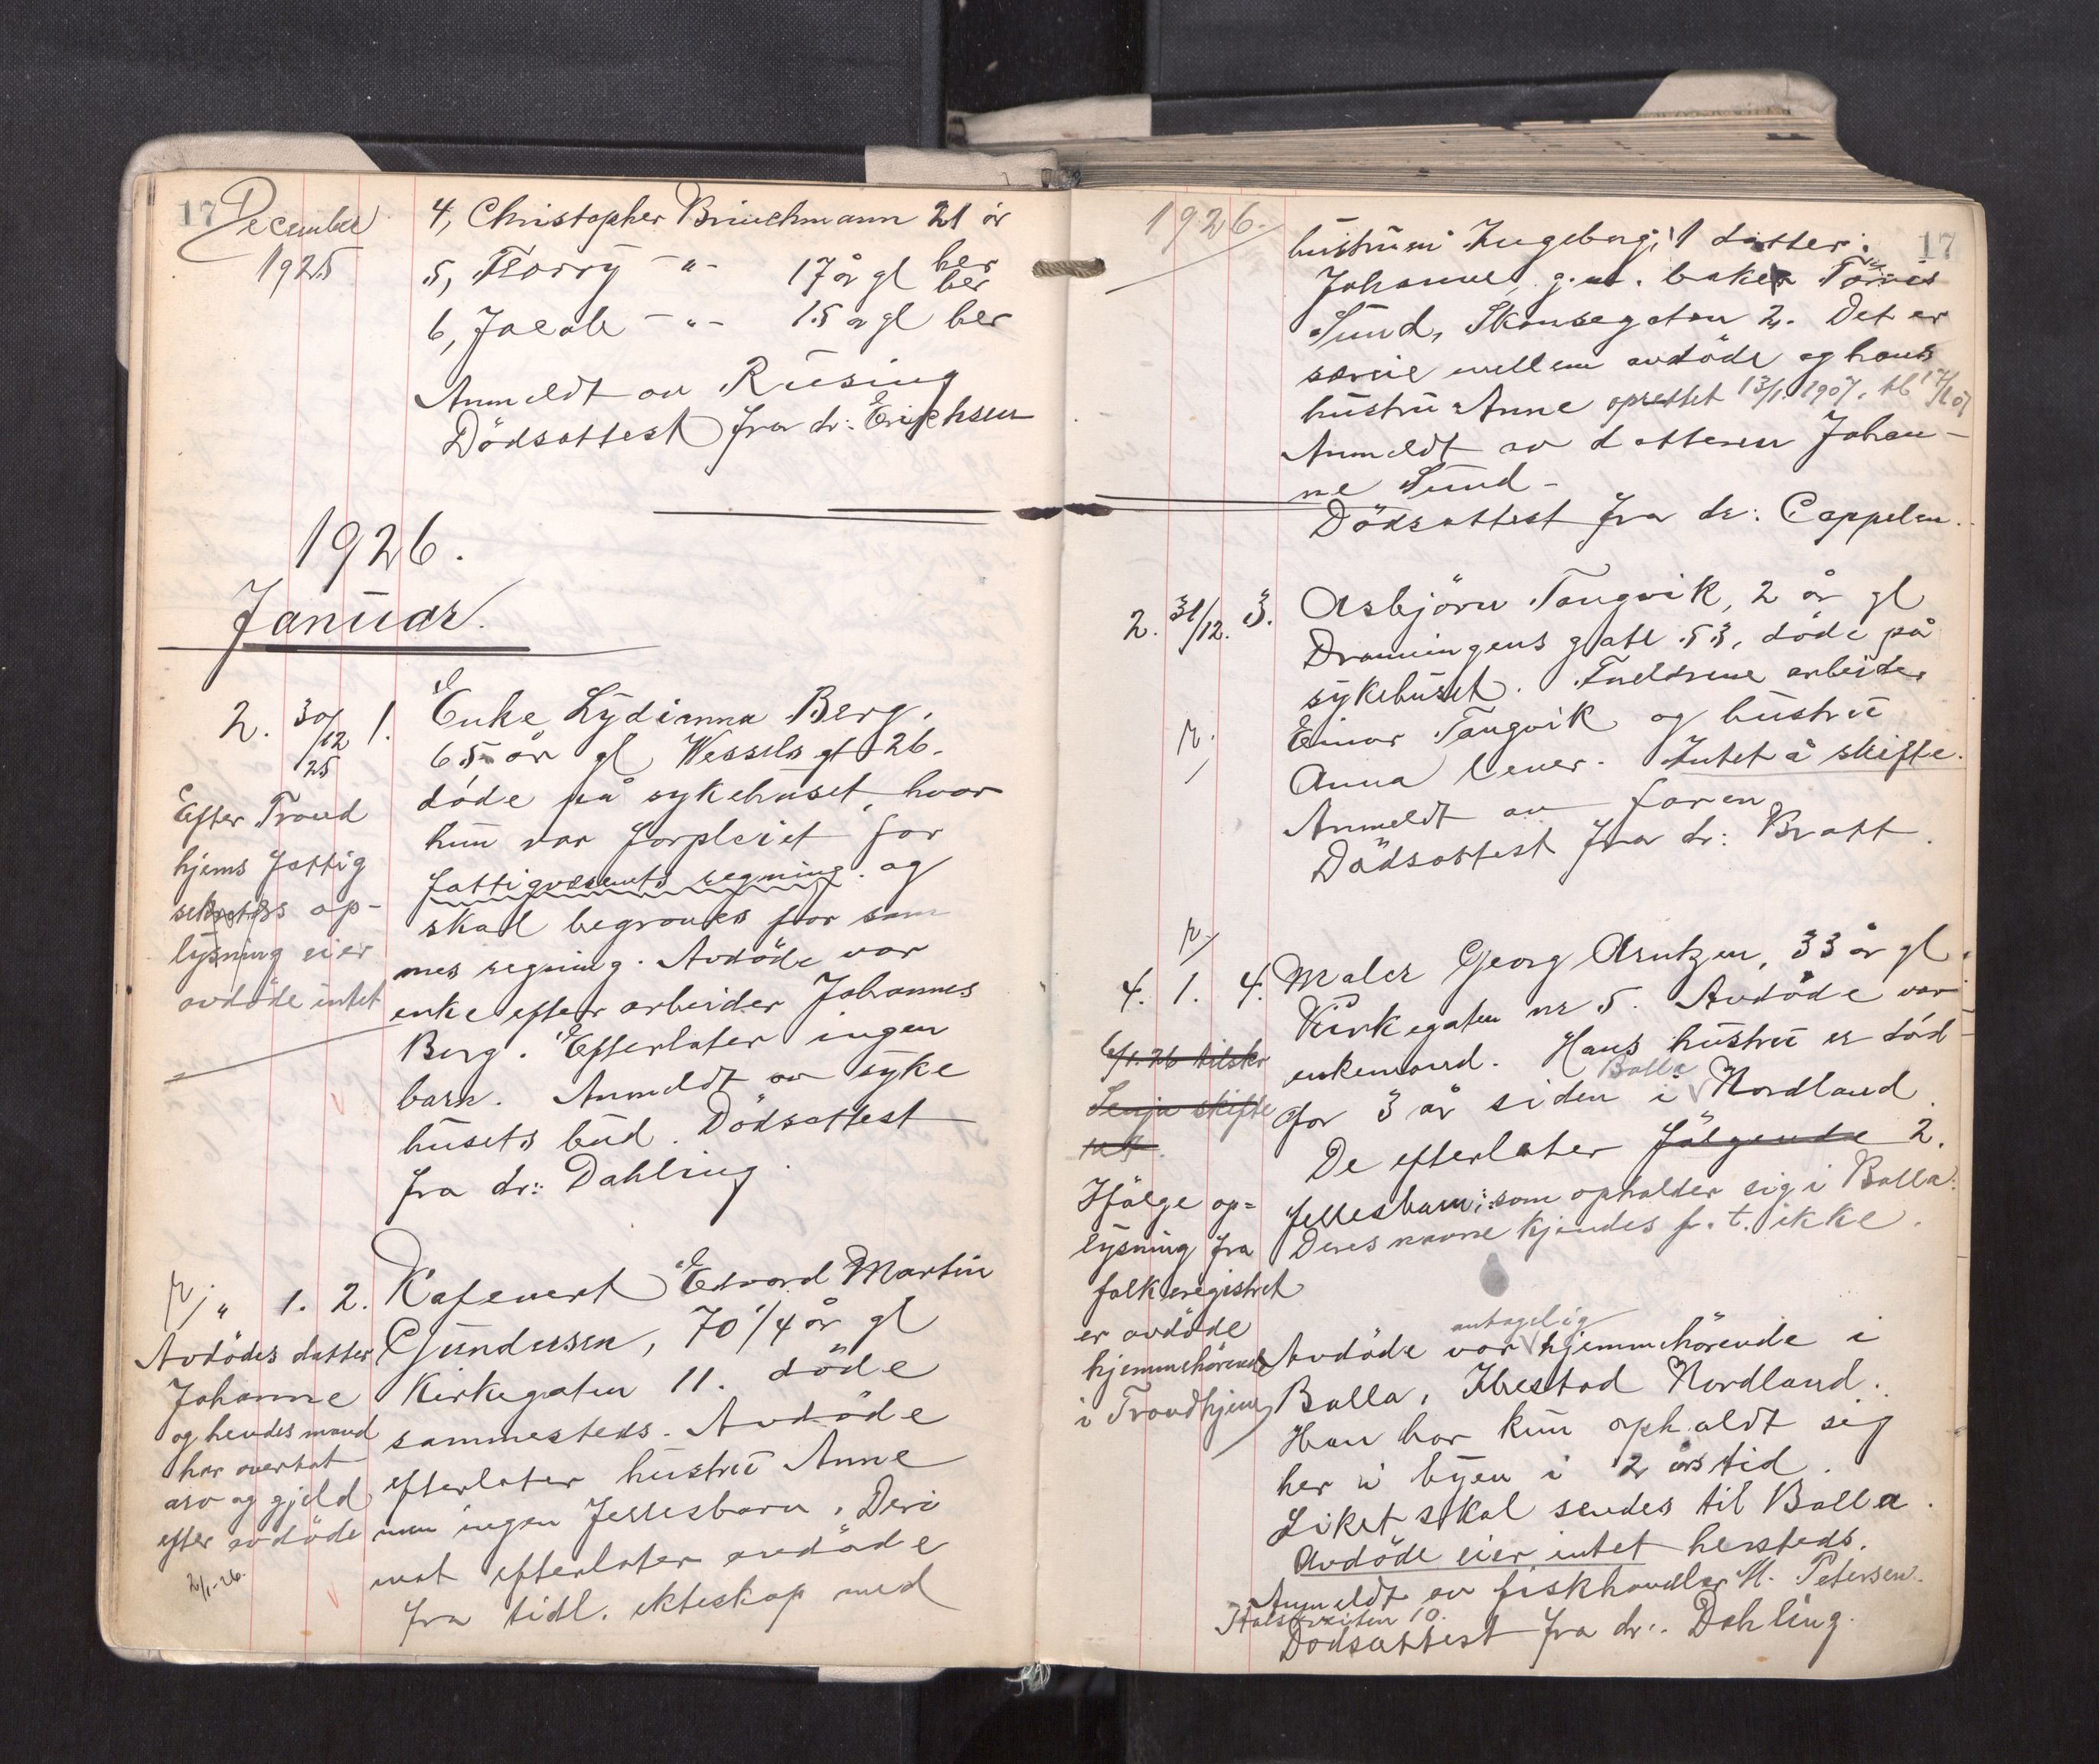 17
December
1925
4, Christopher Brinchmann 21 år
5, Florry - " - 17 år gl her
her
6, Jacob - " - 15 år gl her
Anmeldt av Rüsing
Dödsattest fra dr: Erichsen
1926.
Januar.
2. 30/12 25 1. Enke Lydianna Berg,
65 år gl Wessels gt 26.
döde på sykehuset, hvor
hun var forpleiet for
fattigvesenets regning. og
skal begraves for sam
mes regning. Avdöde var
enke efter arbeider Johannes
Berg. Efterlater ingen
barn. Anmeldt av syke
husets bud. Dödsattest
fra dr: Dahling.
Efter Trond
hjems fattig
op-
lysning eier
avdöde intet
" 1. 2. Kafevert Edvard Martin
Gundersen, 70 1/4 år gl
Kirkegaten 11. döde
sammesteds. Avdöde
efterlater hustru Anne
men ingen fellesbarn. Deri
mot efterlater avdöde
fra tidl. ekteskap med
Avdödes datter
Johanne
og hendes mand
har overtat
arv og gjeld
efter avdöde
2/1-26.
1926.
17
hustruen Ingeborg, 1 datter:
Johanne, g.m. baker
Sund, Skansegaten 2. Det er
særeie mellem avdöde og hans
hustru Anne oprettet 13/1 1907, tl 17/1 07
Anmeldt av datteren Johan-
ne Sund -
Dödsattest fra dr: Cappelen.
2. 31/12. 3. Asbjörn Tangvik, 2 år gl
Dronningens gate 53, döde på
sykehuset. Foreldrene arbeider
Einar Tangvik og hustru
Anna lever. Intet å skifte.
Anmeldt av faren
Dödsattest fra dr: Bratt.
4. 1. 4. Maler Georg Arntzen, 33 år gl.
Kirkegaten nr 5. Avdöde var
enkemand. Hans hustru er död
for 3 år siden i Balla Nordland.
De efterlater fölgende 2.
fellesbarn: som opholder sig i Balla.
Deres navne kjendes p. t. ikke.
6/1-26 tilskr
Senja skifte
rett.
Ifölge op=
lysning fra
folkeregistret
er avdöde
hjemmehörende
i Trondhjem
antagelig
Avdöde var hjemmehörende i
Balla, Ibestad Nordland.
Han har kun opholdt sig
her i byen i 2 års tid.
Liket skal sendes til Balla.
Avdöde eier intet hersteds.
Anmeldt av fiskhandler M. Petersen.
10.
Dödsattest fra dr.. Dahling.